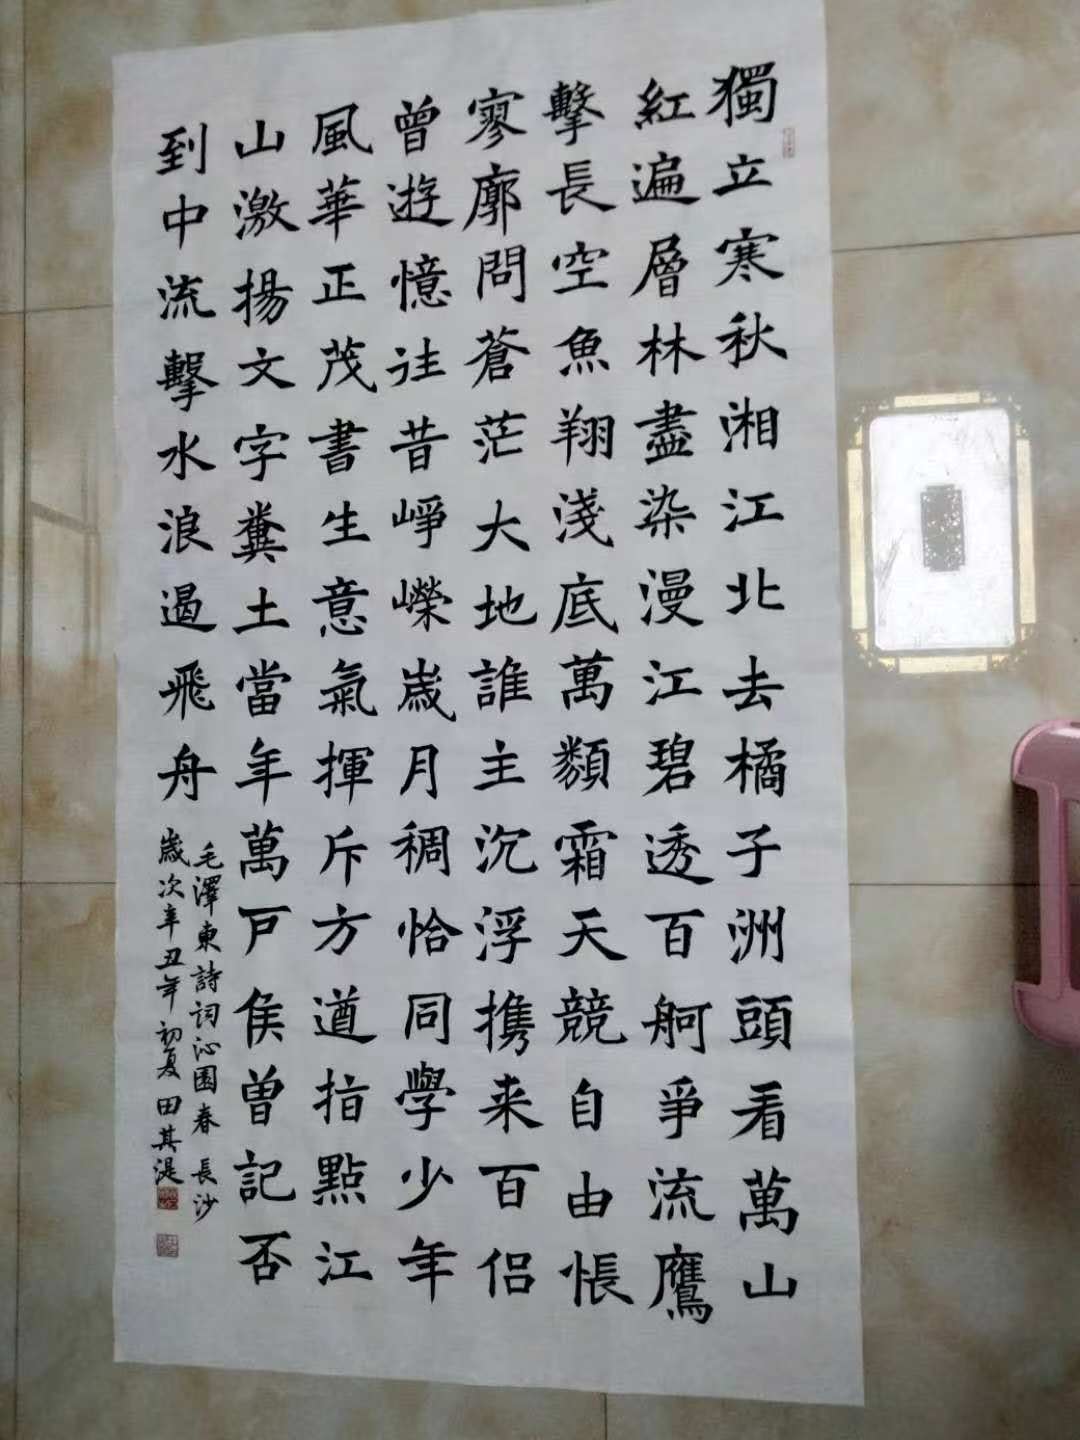 獨立寒秋湘江北去橘子洲頭看萬山
紅遍層林盡染漫江碧透百舸爭流鷹
擊長空魚翔淺底萬類霜天競自由悵
寥廓問蒼茫大地誰主沉浮携来百侣
曾遊憶往昔崢嶸歲月稠恰同學少年
風華正茂書生意氣揮斥方遒指點江
山激揚文字糞土當年萬戶侯曾記否
到中流擊水浪遏飛舟
毛澤東詩詞沁園春 長沙
歲次辛丑年初夏 田其湜